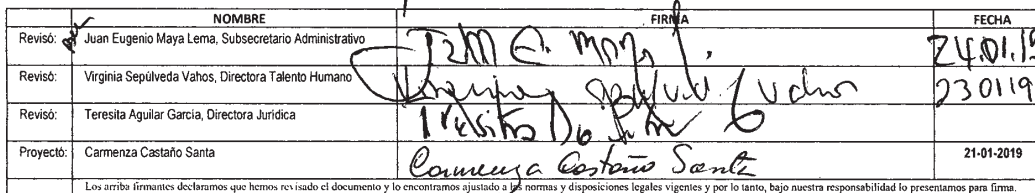 NOMBRE FIRMA FECHA
Revisó: Juan Eugenio Maya Lema, Subsecretario Administrativo 24.01.19
Revisó: Virginia Sepúlveda Vahos, Directora Talento Humano Virginia Sepúlveda Vahos 230119
Revisó: Teresita Aguilar Garcia, Directora Jurídica
Proyectó: Carmenza Castaño Santa Carmenza Castaño Santa 21-01-2019
Los arriba firmantes declaramos que hemos revisado el documento y lo encontramos ajustado a las normas y disposiciones legales vigentes y por lo tanto, bajo nuestra responsabilidad lo presentamos para firma.